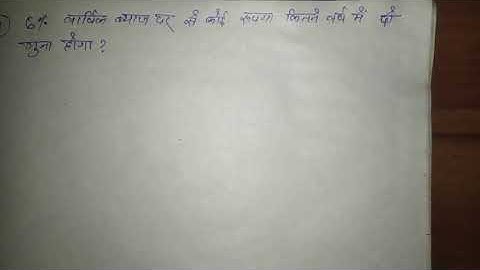 6% वार्षिक ब्याज दर से कोई रूपया कितने वर्ष में दो
गुना होगा ?